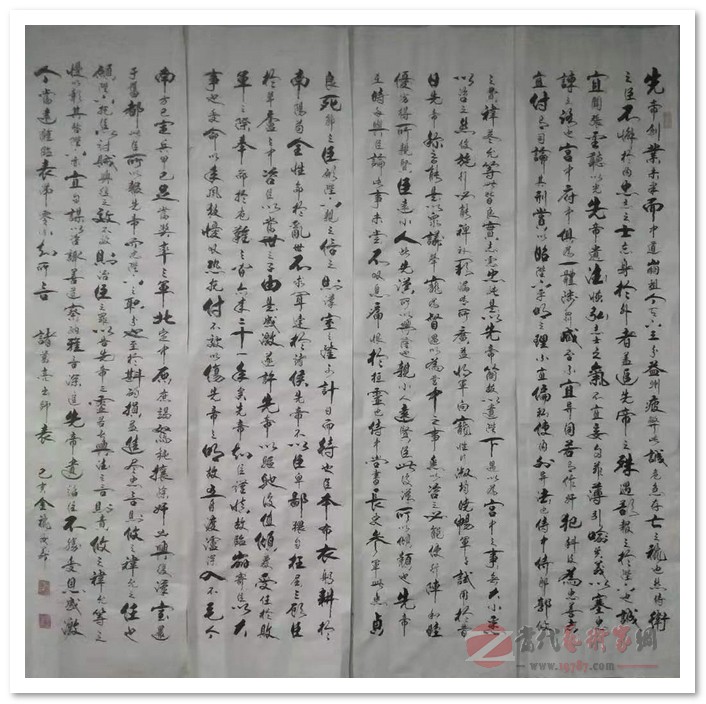 先帝创业未半而中道崩殂今天下三分益州疲弊此诚危急存亡之秋也然侍衛
之臣不懈於内忠志之士忘身於外者盖追先帝之殊遇欲報之於陛下也诚
宜開張聖聽以光先帝遗德恢弘志士之氣不宜妄自菲薄引喻失義以塞忠
諫之路也宫中府中俱為一體陟罚臧否不宜异同若有作奸犯科及為忠善者
宜付有司論其刑賞以昭陛下平明之理不宜偏私使内外异法也侍中侍郎郭攸
之费禕董允等此皆良實志虑忠純是以先帝簡拔以遺陛下愚以為宫中之事事無大小悉
以咨之然後施行必能裨補阙漏有所廣益将軍向寵性行淑均曉暢軍事試用於昔
日先帝稱之曰能是以眾議舉寵為督愚以為营中之事悉以咨之必能使行陣和睦
優劣得所親賢臣遠小人此先漢所以興隆也親小人遠賢臣此後漢所以傾頹也先帝
在時每與臣論此事未嘗不嘆息痛恨於桓靈也侍中尚書長史參軍此悉貞
良死節之臣願陛下親之信之則漢室之隆可計日而待也臣本布衣躬耕於
南陽苟全性命於亂世不求闻達於諸侯先帝不以臣卑鄙猥自枉屈三顧臣
於草廬之中咨臣以當世之事由是感激遂許先帝以驅馳後值傾覆受任於敗
軍之際奉命於危難之間尔来二十一年矣先帝知臣謹慎故臨崩寄臣以大
事也受命以来夙夜憂嘆恐付不效以傷先帝之明故五月渡瀘深入不毛今
南方已定兵甲已足當奬率三軍北定中原庶竭駑鈍攘除奸凶興復漢室還
于舊都此臣所以報先帝而忠陛下之職分也至於斟酌損益進盡忠言則攸之禕允之任也
願陛下托臣以討賊興復之效不效則治臣之罪以告先帝之靈若無興德之言則責攸之禕允等之
慢以彰其咎陛下亦宜自謀以咨諏善道察納雅言深追先帝遺詔臣不勝受恩感激
今當遠離臨表涕零不知所言 諸葛亮出師表 己亥金龍
当代艺术家网
www.19787.com